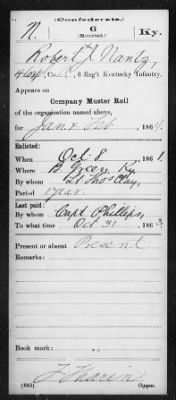 (Confederate.)
N. 6 Ky.
(Mounted.)
Robert J. Nantz,
Co. C, 6 Reg't Kentucky Infantry.
Appears on
Company Muster Roll
of the organization named above,
for Jan & Feb, 1864.
Enlisted:
When Oct 8, 1861.
Where B. Green, Ky.
By whom Lt. Thos Clay,
Period 1 year
Last paid:
By whom Capt. Phillips,
To what time Oct 31, 1863.
Present or absent Present
Remarks:
Book mark:
(642) Copyist.